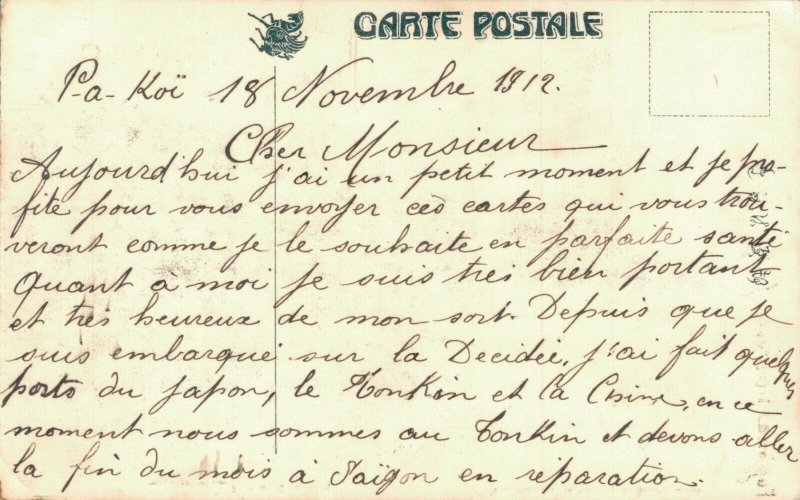 CARTE POSTALE
Pa-Koï 18 Novembre 1912.
Cher Monsieur
Aujourd'hui j'ai un petit moment et je pro-
fite pour vous envoyer ces cartes qui vous trou-
veront comme je le souhaite en parfaite santé
Quant à moi je suis très bien portant
et très heureux de mon sort. Depuis que je
suis embarqué sur la Decidée, j'ai fait quelques
ports du Japon, le Tonkin et la Chine, en ce
moment nous sommes au Tonkin et devons aller
la fin du mois à Saïgon en réparation.